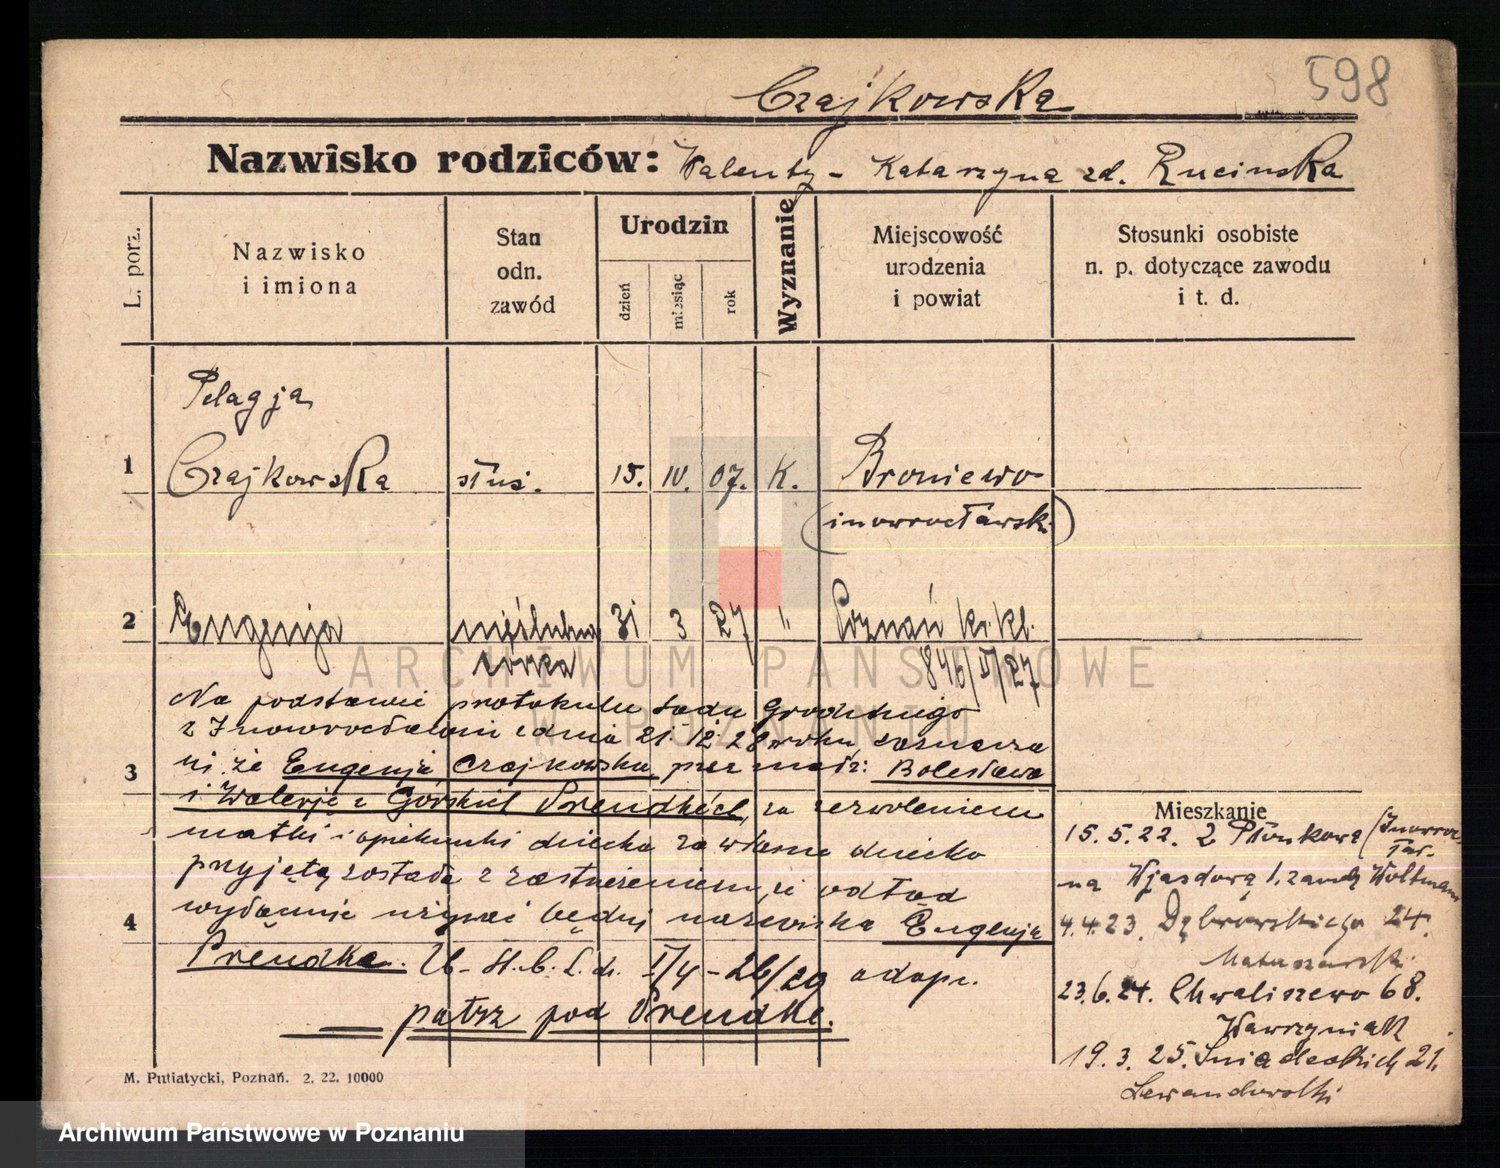 598
Czajkowska
Nazwisko rodziców: Walenty - Katarzyna zd. Rucinska
L. porz.
Nazwisko
i imiona
Stan
odn.
zawód
Urodzin
dzień
miesiąc
rok
Wyznanie
Miejscowość
urodzenia
i powiat
Stosunki osobiste
n. p. dotyczące zawodu
i t. d.
Pelagja
1 Czajkowska służ. 15. IV. 07. K. Broniewo
(inowrocławski)
2 Eugenja nieślubna 31 3 27 " Poznań kr. kl.
córka 846/IV/27
Na podstawie protokułu Sądu Grodzkiego
z Inowrocławiu z dnia 21. 12. 28 roku, zaznacza
3 że Eugenja Czajkowska przez małż: Bolesława
i Walerję z Górskich Prendkich, za zezwoleniem
matki i opiekunki dziecka za własne dziecko
przyjętą została z zastrzeżeniem, że odtąd
4 wyłącznie używać będzie nazwiska Eugenja
Prendke. I/4-26/29 adopt.
patrz pod Prendke.
Mieszkanie
15.5.22. z Płonkowa (Inowroc
ław.
na Wjazdową 1,
4.4.23. Dąbrowskiego 24.
23.6.24. Chwaliszewo 68.
Wawrzyniak
19.3.25. Śniadeckich 21.
Lewandowski
M. Putiatycki, Poznań. 2. 22. 10000
ARCHIWUM PAŃSTWOWE
W POZNANIU
Archiwum Państwowe w Poznaniu